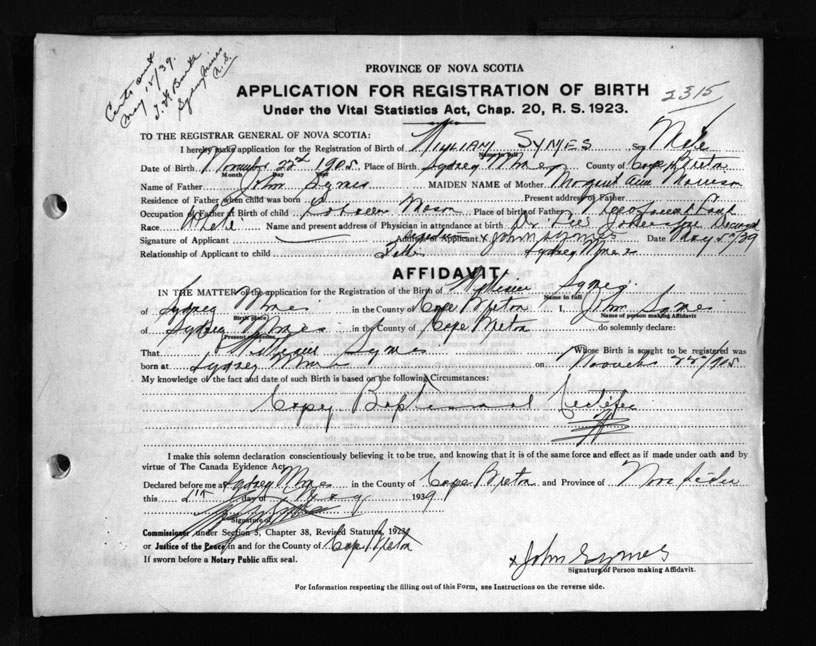 Certs sent
May 15/39.
Sydney Mines
N.S.
PROVINCE OF NOVA SCOTIA
APPLICATION FOR REGISTRATION OF BIRTH
2315
Under the Vital Statistics Act, Chap. 20, R. S. 1923.
TO THE REGISTRAR GENERAL OF NOVA SCOTIA:
I hereby make application for the Registration of Birth of William SYMES Sex Male
Name in full
Date of Birth November 22nd 1905 Place of Birth Sydney Mines County of Cape Breton
Month Day
Name of Father John Symes MAIDEN NAME of Mother Margaret Ann
Residence of Father when child was born Present address of Father
Occupation of Father at Birth of child Mason Place of birth of Father
Race White Name and present address of Physician in attendance at birth Dr Deceased
Signature of Applicant Address of Applicant x John Symes Date May 5th/39
Relationship of Applicant to child Father Sydney Mines
AFFIDAVIT
IN THE MATTER of the application for the Registration of the Birth of William Symes
Name in Full
of Sydney Mines in the County of Cape Breton I, John Symes
Birth Place Name of person making Affidavit
of Sydney Mines in the County of Cape Breton do solemnly declare:
Present residence
That William Symes Whose Birth is sought to be registered was
born at Sydney Mines on November 22/1905
My knowledge of the fact and date of such Birth is based on the following Circumstances:
Copy Baptismal Certifec
I make this solemn declaration conscientiously believing it to be true, and knowing that it is of the same force and effect as if made under oath and by
virtue of The Canada Evidence Act.
Declared before me at Sydney Mines in the County of Cape Breton and Province of Nova Scotia
this 5th day of May 1939
Signature of
Commissioner under Section 5, Chapter 38, Revised Statutes, 1923
or Justice of the Peace in and for the County of Cape Breton
If sworn before a Notary Public affix seal.
x John Symes
Signature of Person making Affidavit.
For Information respecting the filling out of this Form, see Instructions on the reverse side.